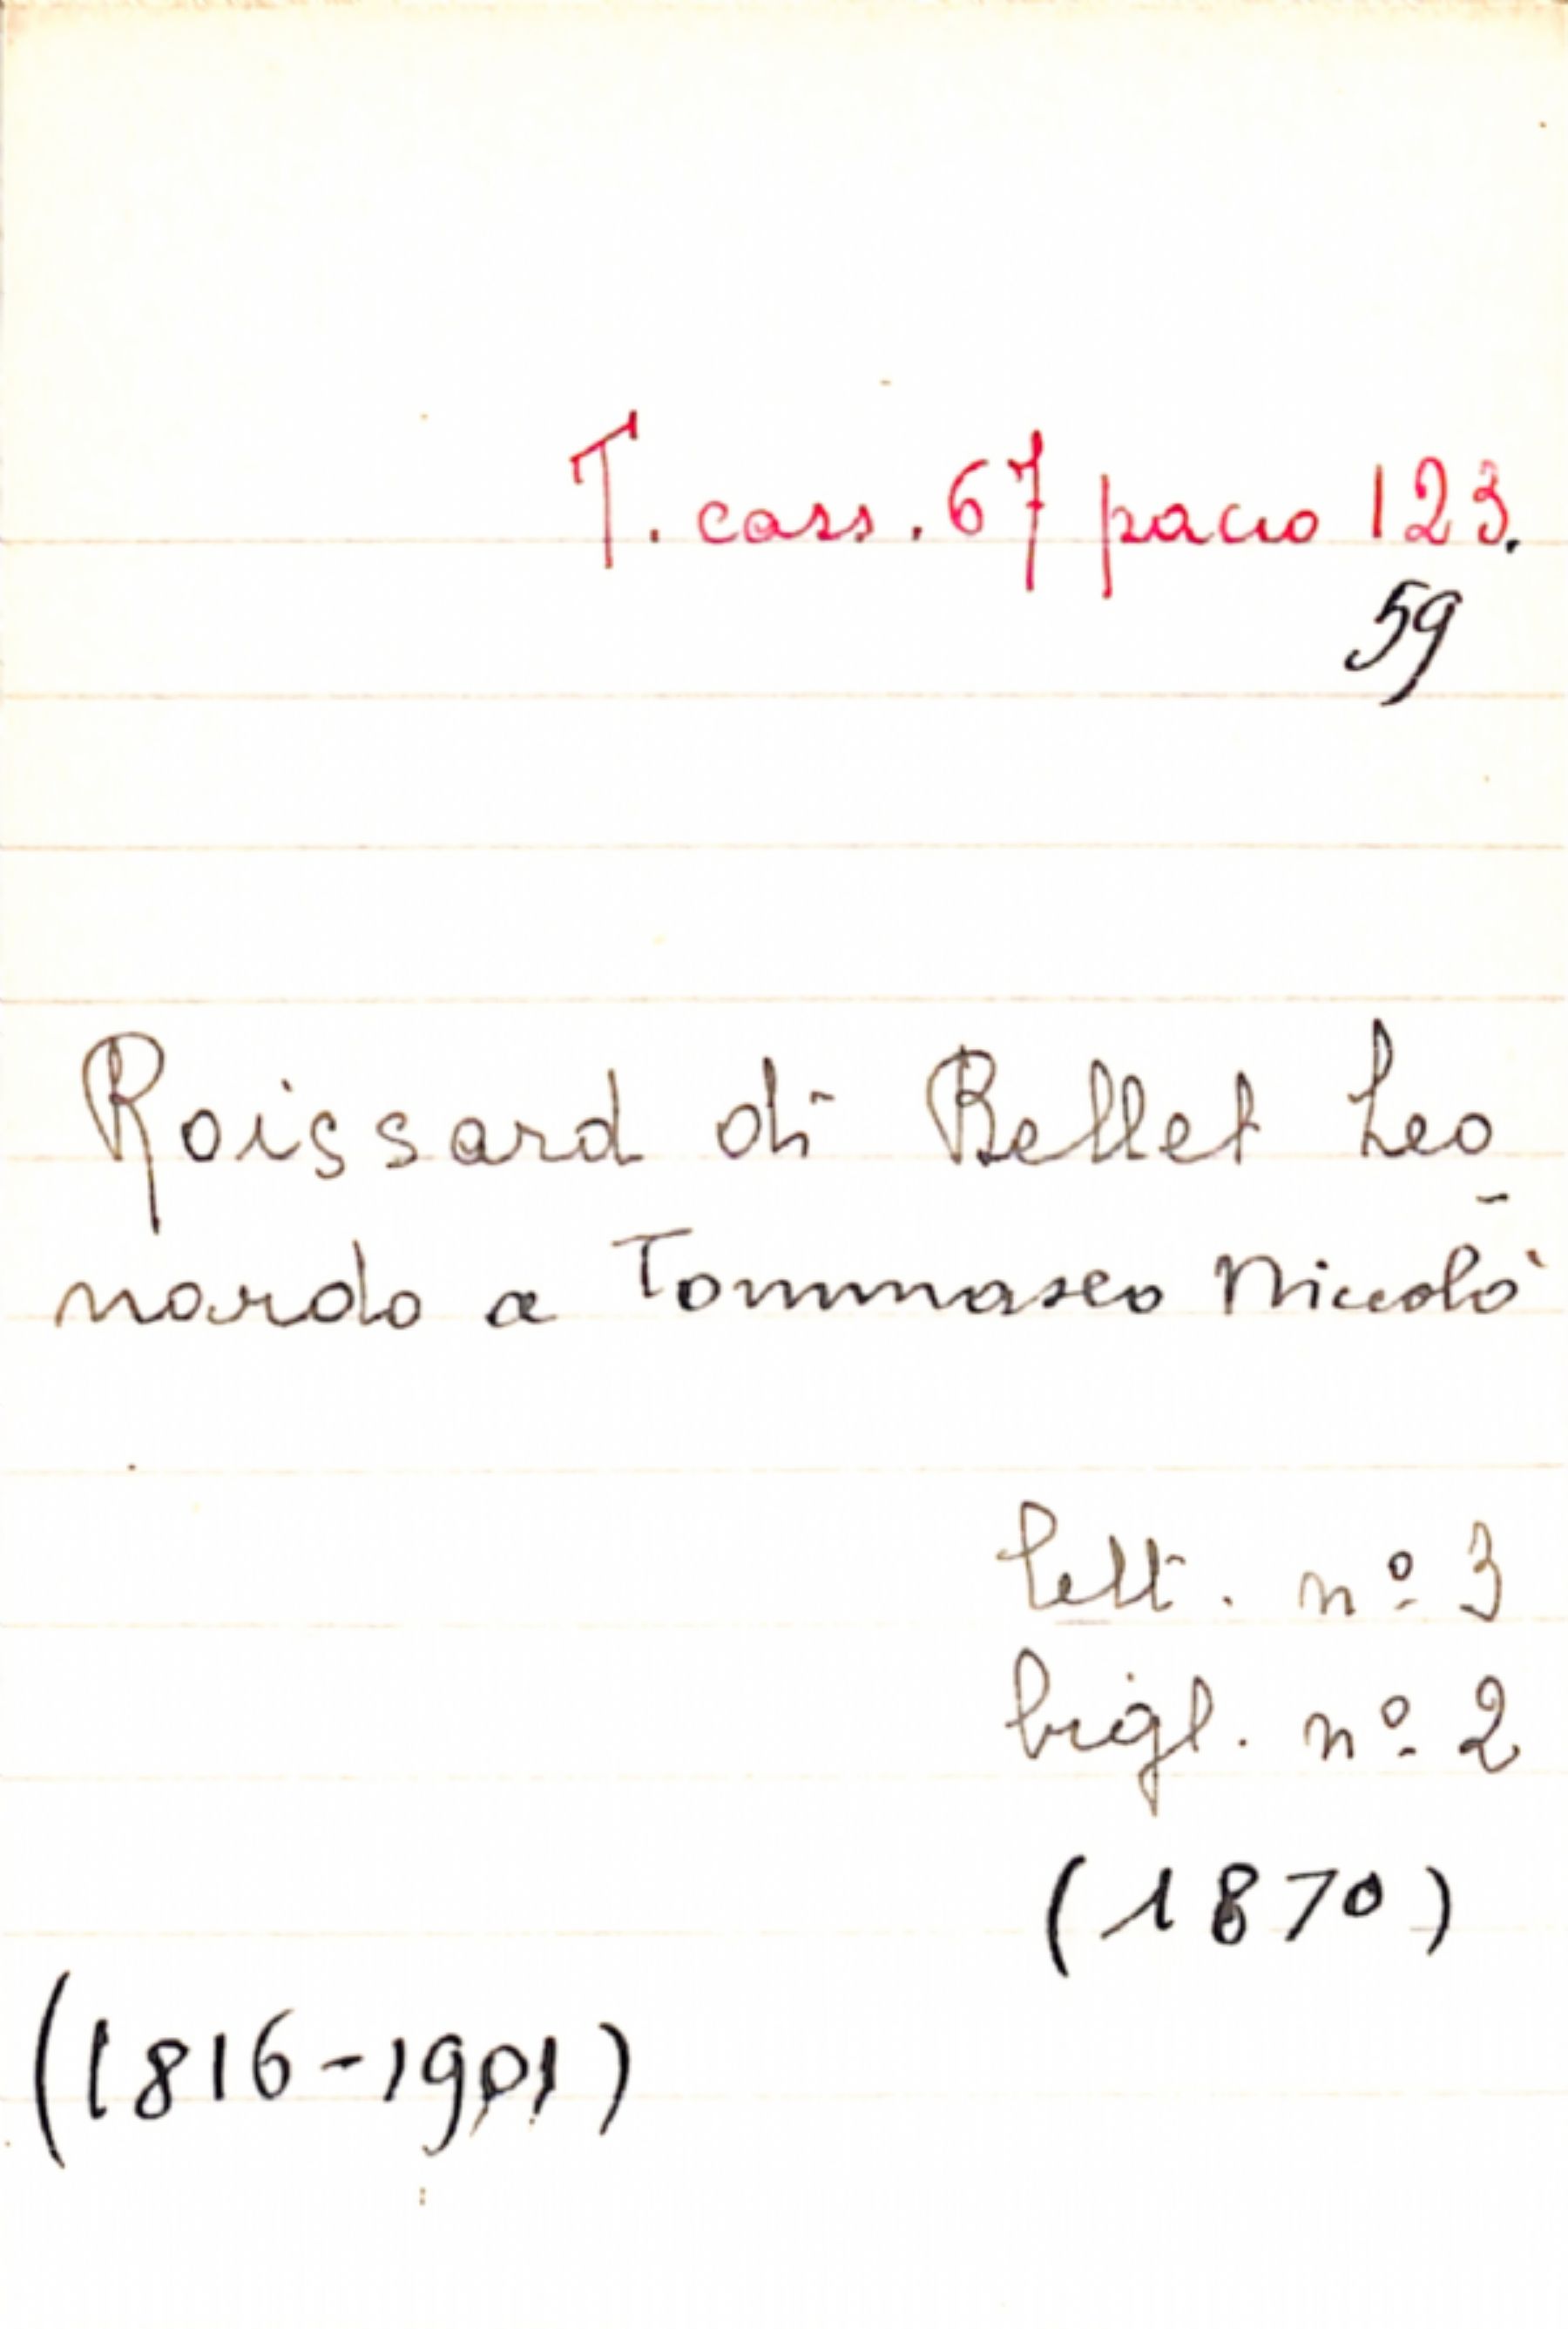 T. cass. 67 pacco 123.
59
Roissard di Bellet Leo
-
nardo a Tommaseo Niccolò
lett. nº 3
bigl. nº 2
(1870)
(1816-1901)